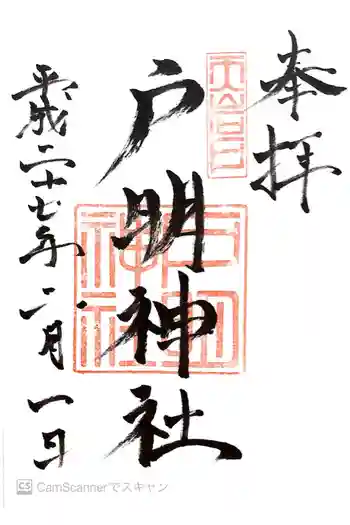 奉拝
戸明神社
平成二十七年二月一日
CS CamScannerでスキャン